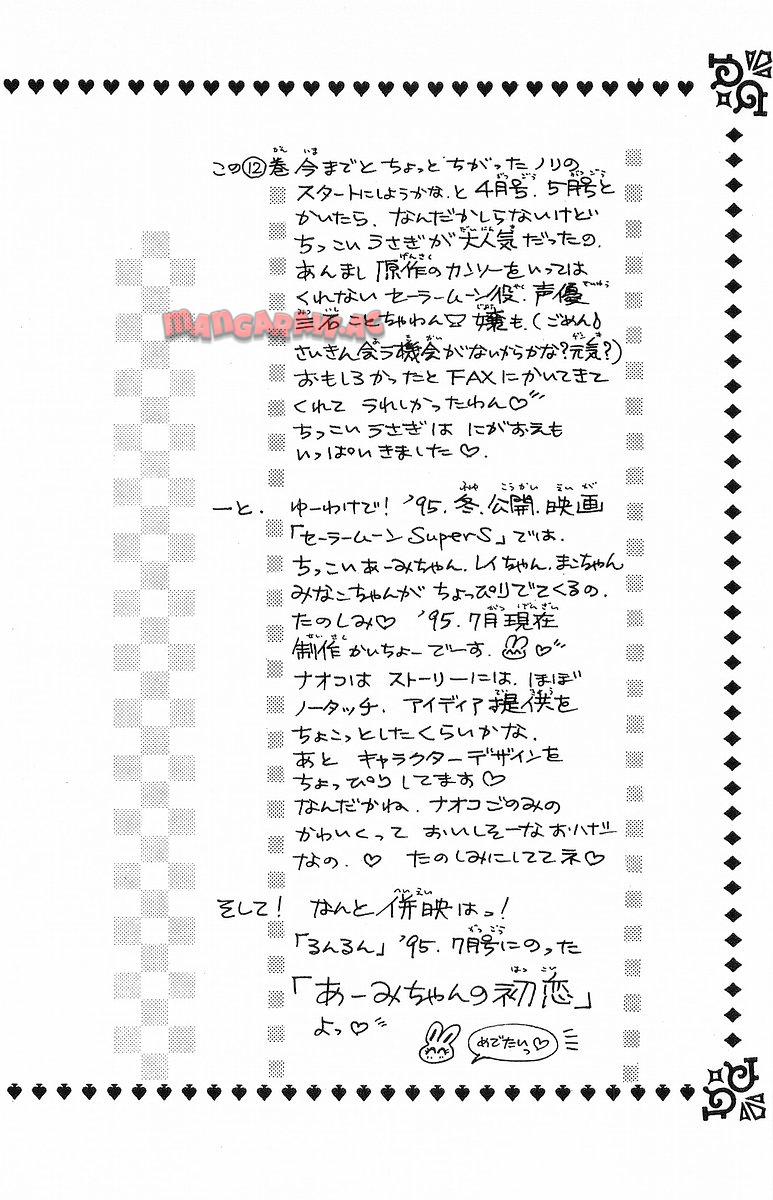 この⑫巻 今までと ちょっと ちがった ノリの
スタートにしようかな、と 4月号、5月号と
かいたら、なんだかしらないけど
ちっこい うさぎが 大人気 だったの、
あんまし 原作の カンソーを いっては
くれない セーラームーン役、声優
三石 ことちゃわん♡ 嬢も、(ごめん♪
さいきん 会う機会がないからかな?元気?)
おもしろかったと FAXにかいてきて
くれて うれしかったわん♡
ちっこい うさぎは にがおえも
いっぱいきました♡.
MANGAPARK.AC
ーと、ゆーわけで! '95.冬.公開.映画
「セーラームーン SuperS」では、
ちっこい あーみちゃん、レイちゃん、まこちゃん
みなこちゃんが ちょっぴりでてくるの.
たのしみ♡ '95.7月 現在
制作 かいちょーでーす.♡
ナオコは ストーリーには、ほぼ
ノータッチ. アイディア 提供を
ちょこっとしたくらいかな.
あと キャラクターデザインを
ちょっぴり してます♡
なんだかね、ナオコごのみの
かわいくって おいしそーな おハナシ
なの.♡ たのしみにしててネ♡
そして! なんと 併映はっ!
「るんるん」'95.7月号にのった
「あーみちゃんの初恋」
よっ♡
めでたいっ♡